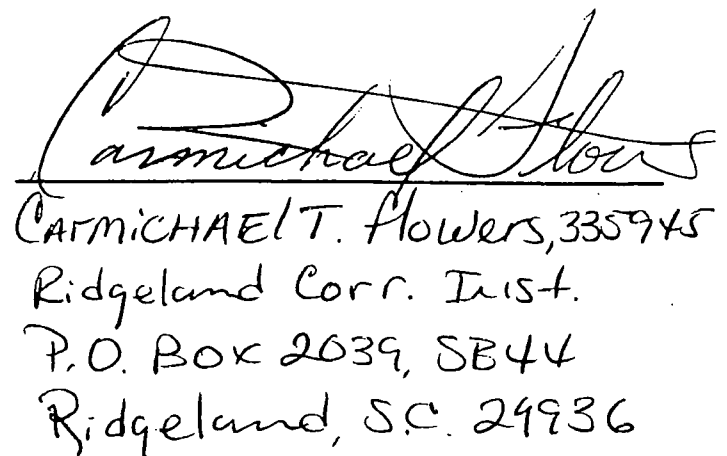 Carmichael Flowers
CARMICHAEl T. flowers, 335945
Ridgeland Corr. Inst.
P.O. BOX 2039, SB44
Ridgeland, S.C. 29936